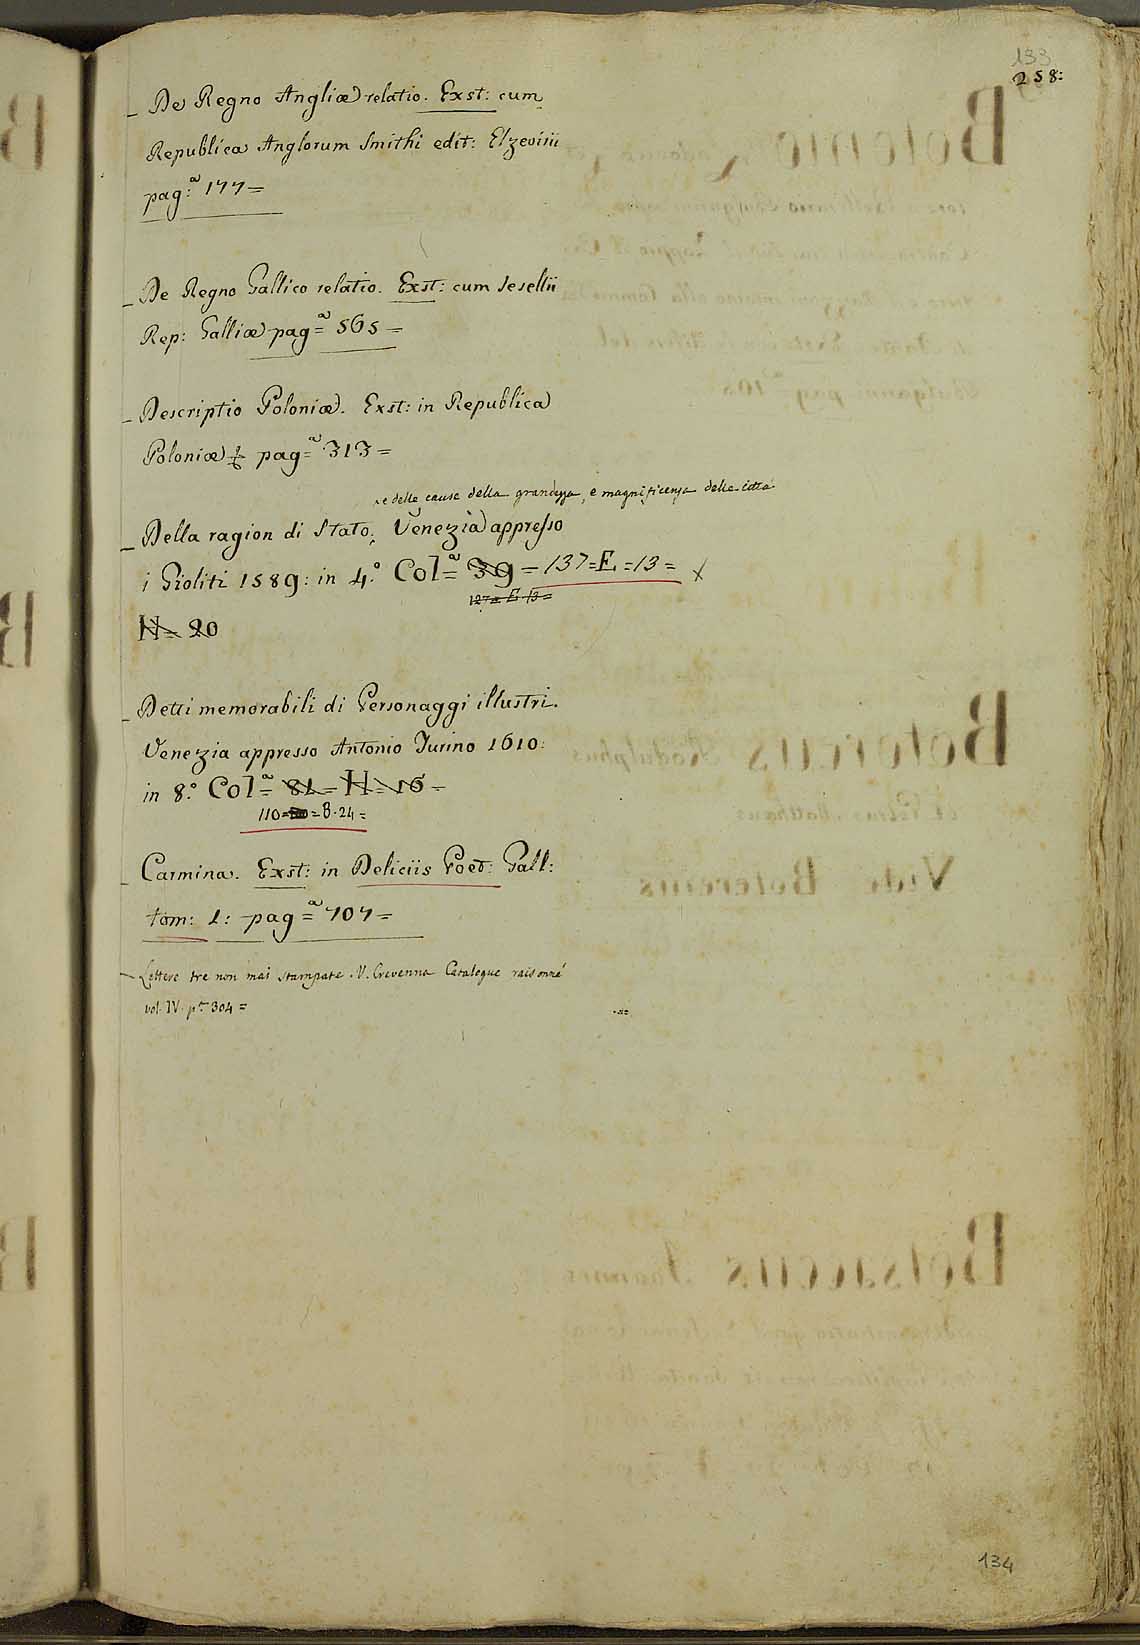 133
258:
De Regno Angliæ relatio. Exst: cum
Republica Anglorum Smithi edit: Elzevirii
pag:ª 177=
De Regno Gallico relatio. Exst: cum Seselii
Rep: Galliæ pagª= 565=
Descriptio Poloniæ. Exst: in Republica
Poloniæ & pagª= 313=
e delle cause della grandezza, e magnificenza delle città
Della ragion di Stato; Venezia appresso
i Gioliti 1589: in 4.º Colª= 39 = 137=E=13= X
127=E.13=
H= 20
Detti memorabili di Personaggi illustri.
Venezia appresso Antonio Turino 1610:
in 8.º Colª= 81= H=16=
110= =B.24=
Carmina. Exst: in Deliciis Poet: Gall:
tom: 1: pagª= 707=
Lettere tre non mai stampate. V. Crevenna Catalogue raisonné
vol. IV. pª 304=
134